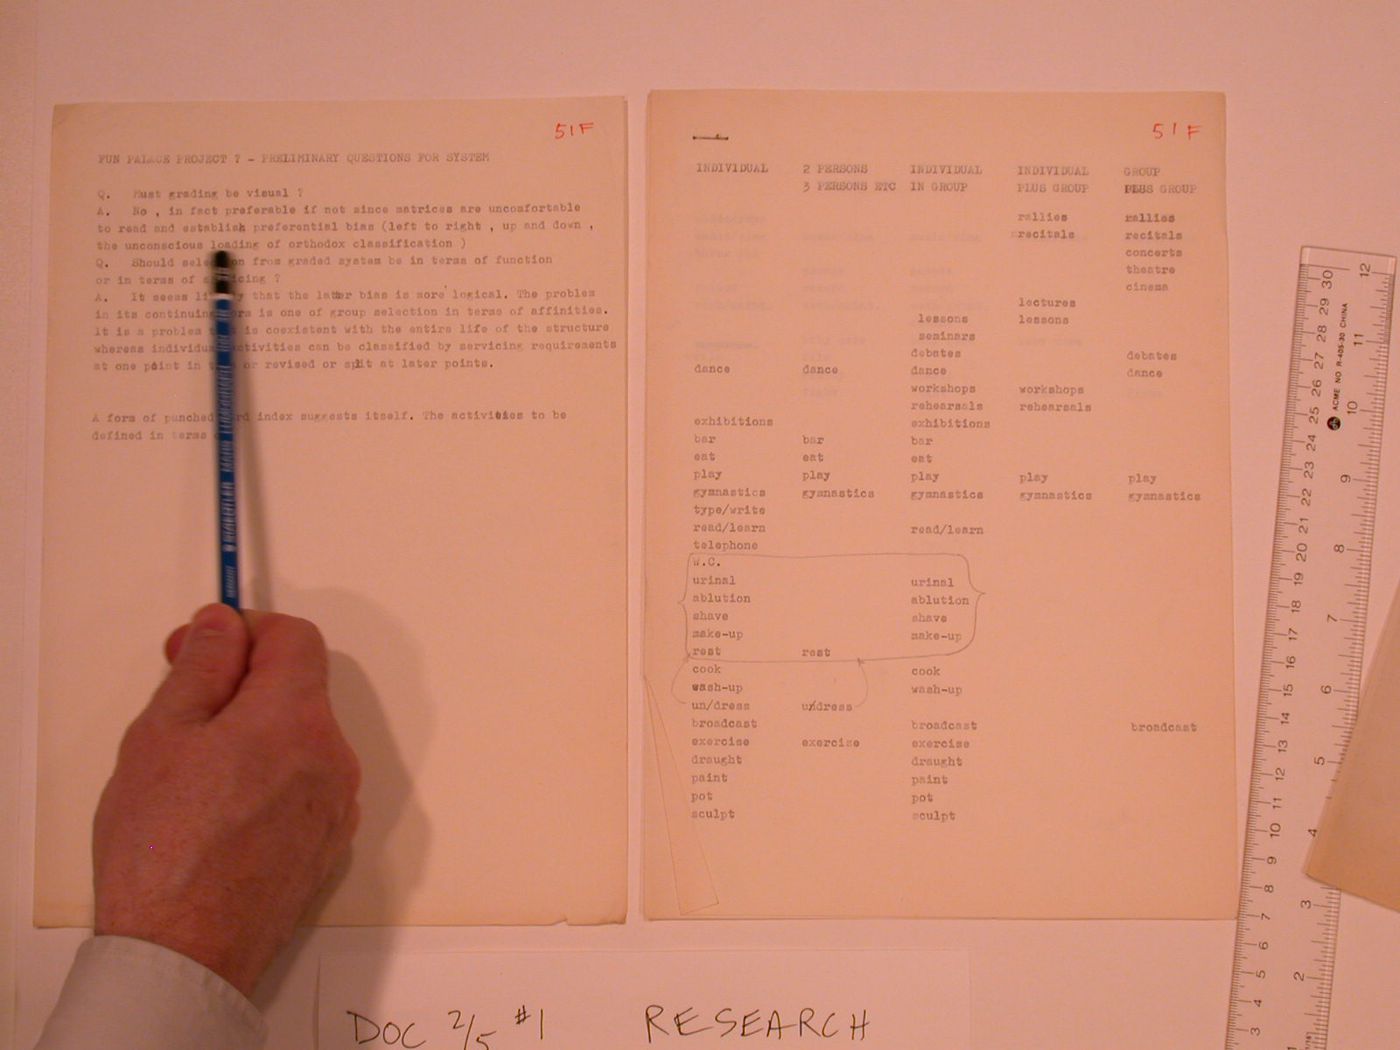 51F
FUN PALACE PROJECT 7 - PRELIMINARY QUESTIONS FOR SYSTEM
Q. Must grading be visual ?
A. No , in fact preferable if not since matrices are uncomfortable
to read and establish preferential bias (left to right , up and down ,
the unconscious loading of orthodox classification )
Q. Should from graded system be in terms of function
or in terms of ?
A. It seems that the latter bias is more logical. The problem
in its continuing is one of group selection in terms of affinities.
It is a problem is coexistent with the entire life of the structure
whereas activities can be classified by servicing requirements
at one point in or revised or split at later points.
A form of punched index suggests itself. The activities to be
defined in terms
51F
INDIVIDUAL 2 PERSONS INDIVIDUAL INDIVIDUAL GROUP
3 PERSONS ETC IN GROUP PLUS GROUP PLUS GROUP
rallies rallies
recitals recitals
concerts
theatre
cinema
lectures
lessons lessons
seminars
debates debates
dance dance dance dance
workshops workshops
rehearsals rehearsals
exhibitions exhibitions
bar bar bar
eat eat eat
play play play play play
gymnastics gymnastics gymnastics gymnastics gymnastics
type/write
read/learn read/learn
telephone
W.C.
urinal urinal
ablution ablution
shave shave
make-up make-up
rest rest
cook cook
wash-up wash-up
un/dress un/dress
broadcast broadcast broadcast
exercise exercise exercise
draught draught
paint paint
pot pot
sculpt sculpt
12 11 10 9 8 7 6 5 4 3 2
30 29 28 27 26 25 24 23 22 21 20 19 18 17 16 15 14 13 12 11 10 9 8 7 6 5 4 3
ACME NO R-405-30 CHINA
STAEDTLER
DOC 2/5 #1 RESEARCH